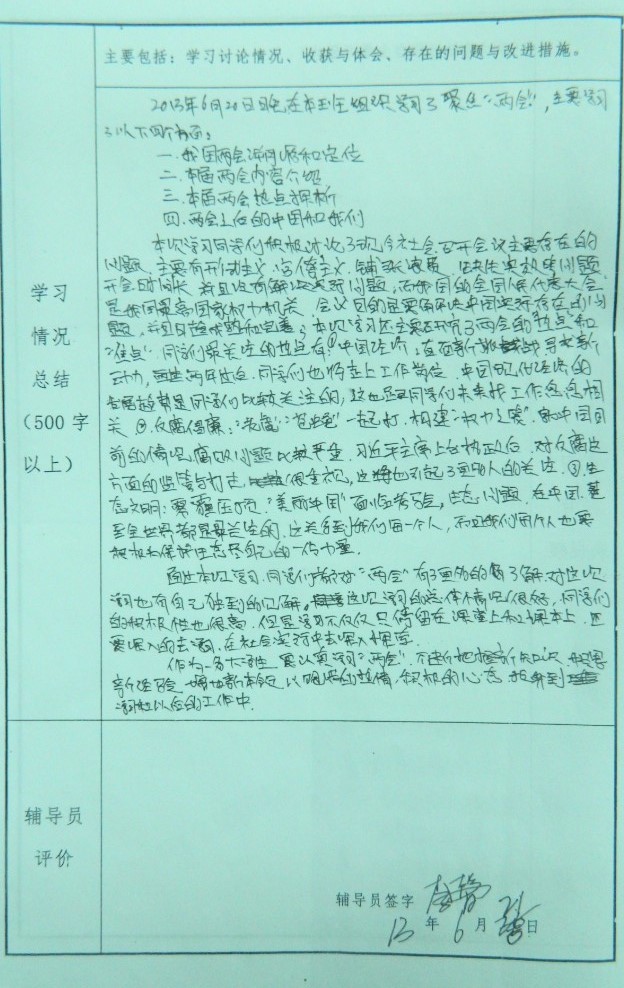 主要包括：学习讨论情况、收获与体会、存在的问题与改进措施。
2013年6月20日晚在本班组织学习了聚焦"两会"，主要学习
了以下四个方面。
一.我国两会
二.本届两会内容介绍
三.本届两会热点探析
四.两会上的中国和我们
本次学习同学们积极讨论了现今社会召开会议主要存在的
问题，主要有形式主义、官僚主义、铺张浪费
开会时间长，并且没有解决实际问题，而我国的全国人民代表大会
是我国最高国家权力机关，会议目的是要解决中国实际存在的问
题，本次学习还主要研究了两会的"热点"和
"难点"。同学们最关注的热点有：中国经济：直面新挑战寻求新
动力，同学们也将走上工作岗位，中国现代经济的
发展趋势是同学们比较关注的，这也是和同学们未来找工作息息相
关 ②反腐倡廉："老虎""苍蝇"一起打，构建"权力之笼"。
前的情况，腐败问题比较严重，习近平主席上台执政后，对反腐这
方面的监管与打击，很重视，这也引起了更多人的关注。③生
态文明：雾霾压顶，"美丽中国"面临考验，生态问题，在中国，甚
至全世界都是最关注的，这关系到我们每一个人，而且我们每个人也要
积极为保护生态尽自己的一份力量。
通过本次学习，同学们都对"两会"有了更多的了解，对这次
学习也有自己独到的见解。这次学习的总体情况很好，同学们
的积极性也很高。但是学习不仅仅只停留在课堂上和课本上，还
要深入的去学习，在社会实践中去深入探究。
作为一名大学生，要认真学习"两会"，不断地
新经验，以饱满的热情，积极的心态，投身到
学习和以后的工作中。
学习
情况
总结
（500字
以上）
辅导员
评价
辅导员签字
13年6月 日